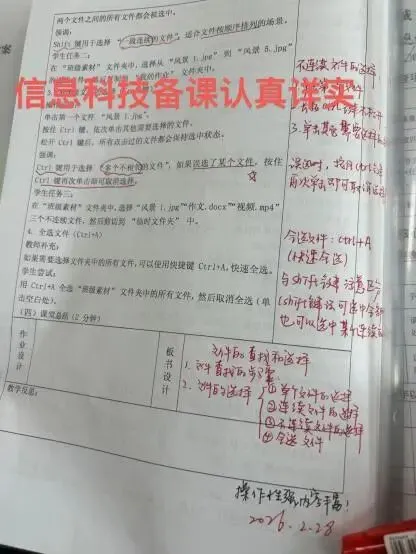 两个文件之间的所有文件都会被选中。
强调：
Shift 键用于选择 "一段连续的文件"，适合文件按顺序排列的场景。
学生任务二：
在 "班级素材" 文件夹中，选择从 "风景 1.jpg" 到 "风景 5.jpg"
信息科技备课认真详实
单击第一个文件 "风景 1.jpg"。
按住 Ctrl 键，依次单击其他需要选择的文件。
松开 Ctrl 键后，所有点击过的文件都会保持选中状态。
强调：
Ctrl 键用于选择 "多个不相邻的文件"，如果误选了某个文件，按住
Ctrl 键再次单击即可取消选择。
学生任务三：
在 "班级素材" 文件夹中，选择 "风景 1.jpg" "作文.docx" "视频.mp4"
三个不连续文件，然后粘贴到 "临时文件夹" 中。
4. 全选文件（Ctrl+A）
教师补充：
如果需要选择文件夹中的所有文件，可以使用快捷键 Ctrl+A，快速全选。
学生尝试：
用 Ctrl+A 全选 "班级素材" 文件夹中的所有文件，然后取消全选（单
击空白处）。
（四）课堂总结（2 分钟）
不连续文件的选择
误选时，按用 Ctrl 键
再次单击即可取消选择
全选文件：ctrl+A
（快速全选）
与 shift 键 注意区分
作业设计
板书设计
文件的查找和选择
1. 文件查找的步骤
2. 文件的选择
① 单个文件的选择
② 连续文件的选择
③ 不连续文件的选择
④ 全选文件
教学反思：
操作性强，内容丰富！
2026.2.28